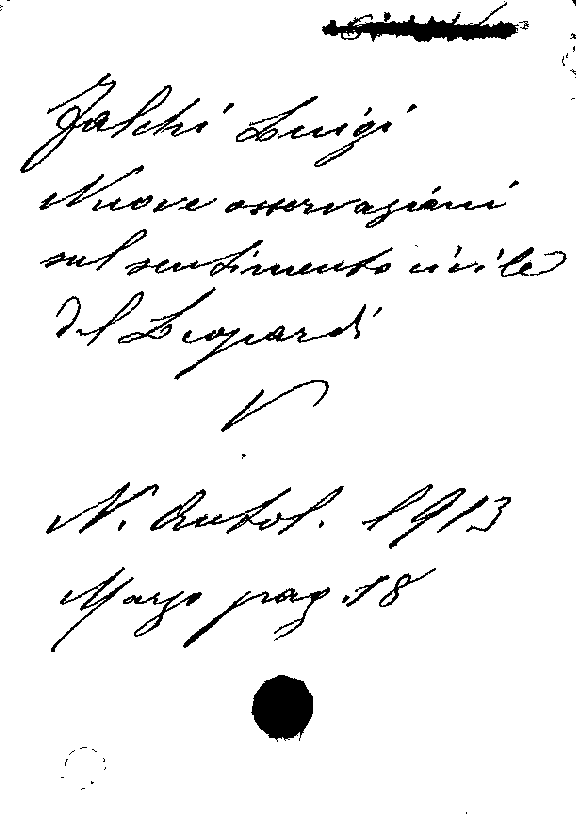 Falchi Luigi
Nuove osservazioni
sul sentimento civile
del Leopardi
V
N. Antol. 1913
Marzo pag. 18